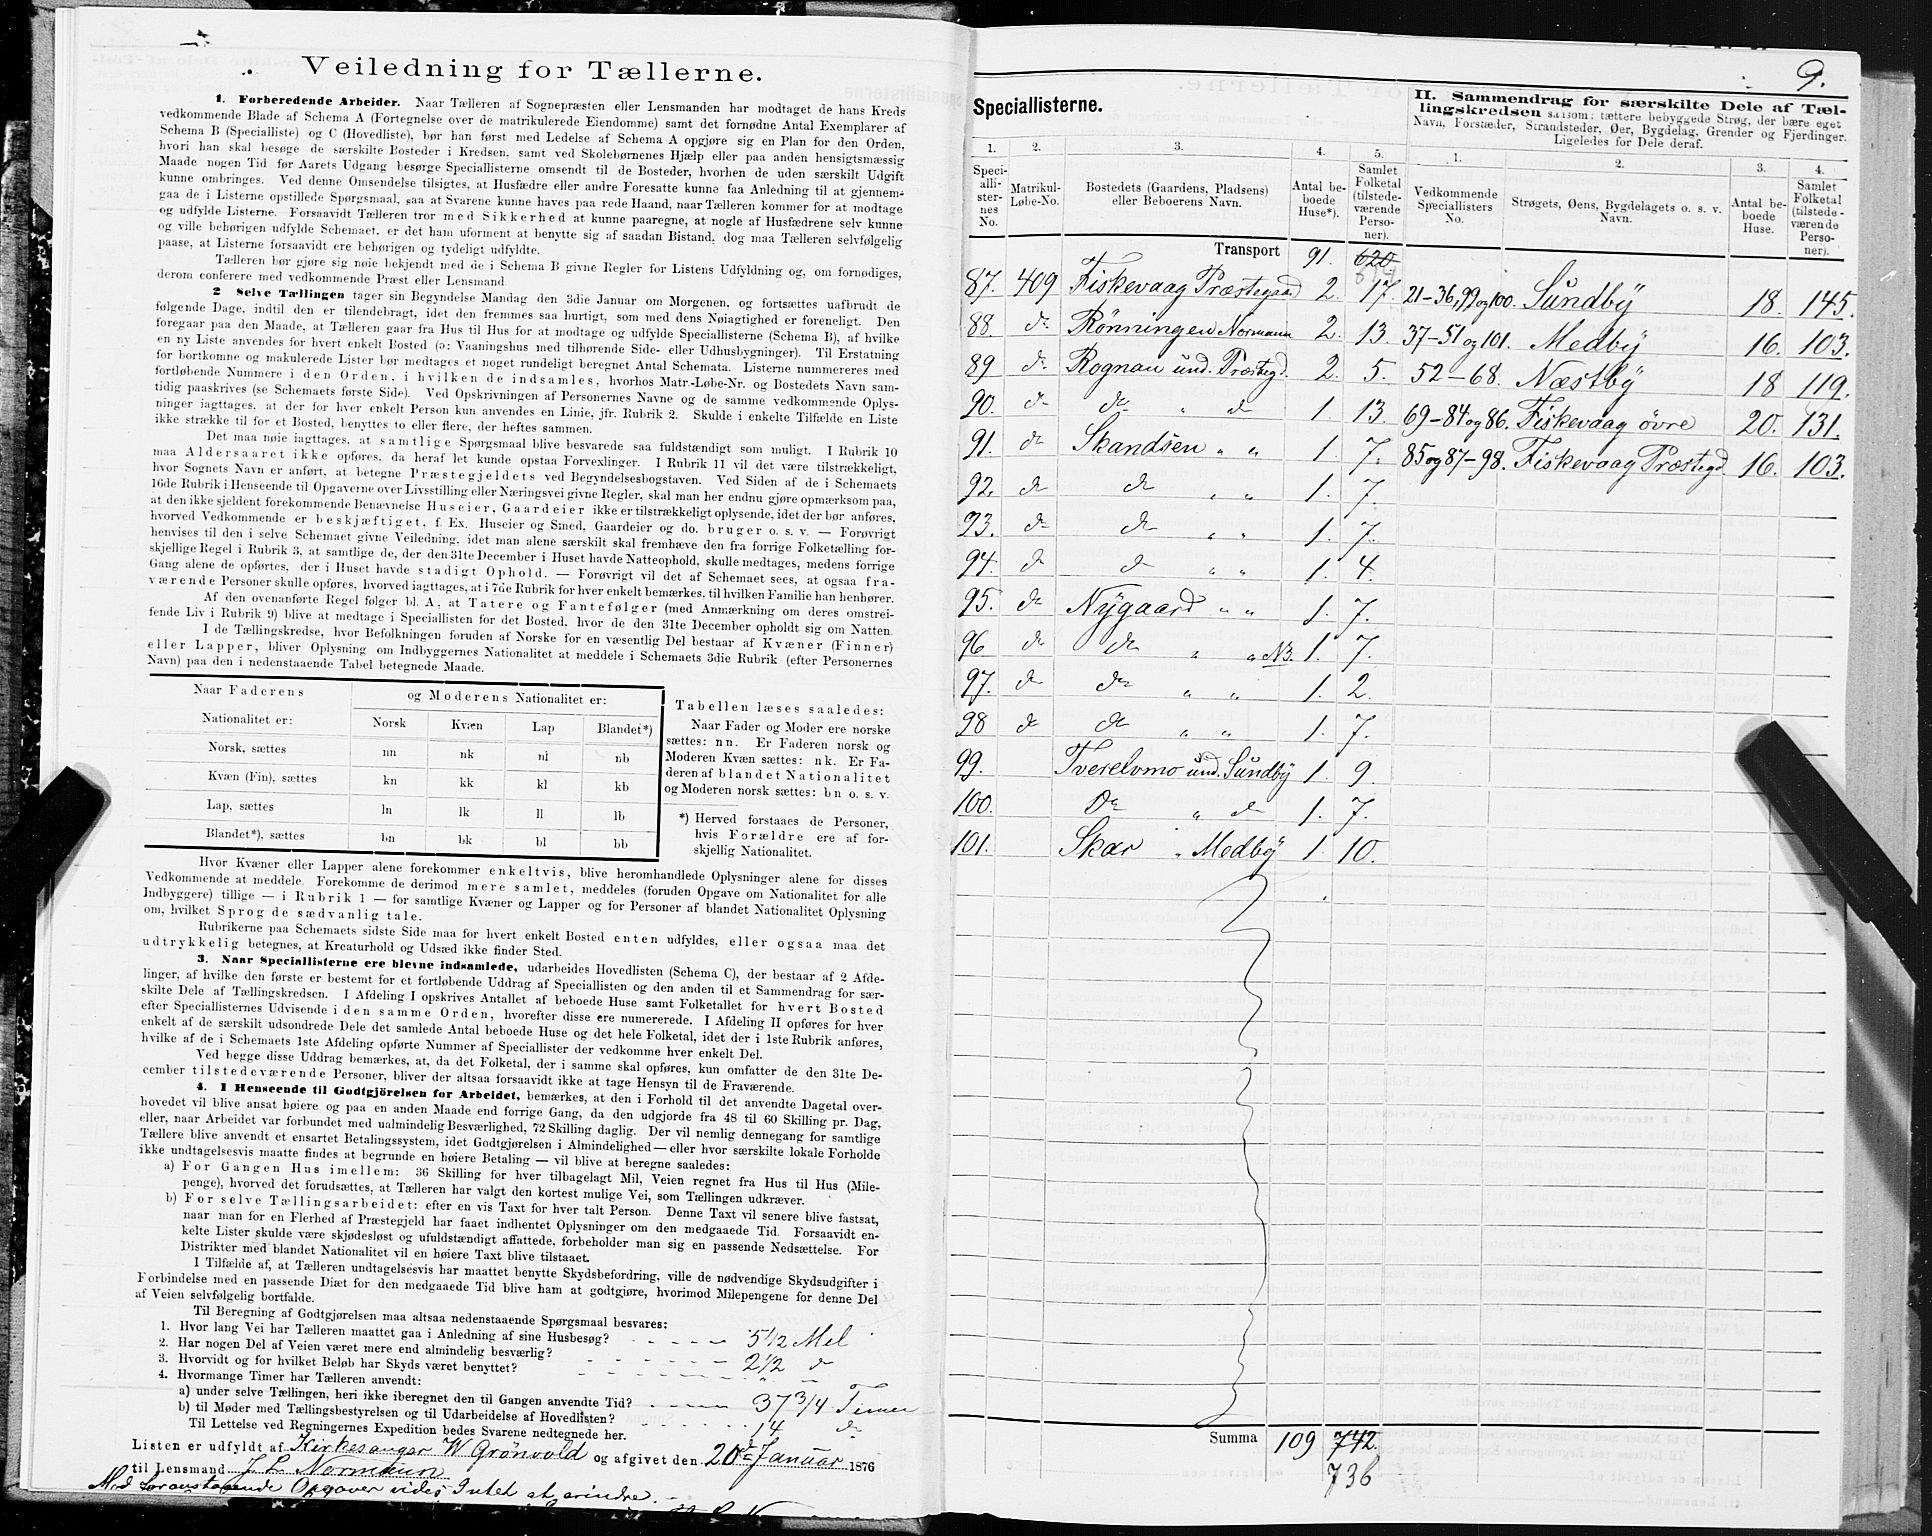 Veiledning for Tællerne.
1. Forberedende Arbeider. Naar Tælleren af Sognepræsten eller Lensmanden har modtaget de hans Kreds
vedkommende Blade af Schema A (Fortegnelse over de matrikulerede Eiendomme) samt det fornødne Antal Exemplarer af
Schema B (Specialliste) og C (Hovedliste), bør han først med Ledelse af Schema A opgjøre sig en Plan for den Orden,
hvori han skal besøge de særskilte Bosteder i Kredsen, samt ved Skolebørnenes Hjælp eller paa anden hensigtsmæssig
Maade nogen Tid før Aarets Udgang besørge Speciallisterne omsendt til de Bosteder, hvorhen de uden særskilt Udgift
kunne ombringes. Ved denne Omsendelse tilsigtes, at Husfædre eller andre Foresatte kunne faa Anledning til at gjennem-
gaa de i Listerne opstillede Spørgsmaal, saa at Svarene kunne haves paa rede Haand, naar Tælleren kommer for at modtage
og udfylde Listerne. Forsaavidt Tælleren tror med Sikkerhed at kunne paaregne, at nogle af Husfædrene selv kunne
og ville behørigen udfylde Schemaet, er det ham uforment at benytte sig af saadan Bistand, dog maa Tælleren selvfølgelig
paase, at Listerne forsaavidt ere behørigen og tydeligt udfyldte.
Tælleren bør gjøre sig nøie bekjendt med de i Schema B givne Regler for Listens Udfyldning og, om fornødiges,
derom conferere med vedkommende Præst eller Lensmand
2 Selve Tællingen tager sin Begyndelse Mandag den 3die Januar om Morgenen, og fortsættes uafbrudt de
følgende Dage, indtil den er tilendebragt, idet den fremmes saa hurtigt, som med dens Nøiagtighed er foreneligt. Den
foregaar paa den Maade, at Tælleren gaar fra Hus til Hus for at modtage og udfylde Speciallisterne (Schema B), af hvilke
en ny Liste anvendes for hvert enkelt Bosted (ɔ: Vaaningshus med tilhørende Side- eller Udhusbygninger). Til Erstatning
for bortkomne og makulerede Lister bør medtages et noget rundeligt beregnet Antal Schemata. Listerne nummereres med
fortløbende Nummere i den Orden, i hvilken de indsamles, hvorhos Matr-Løbe-Nr. og Bostedets Navn sam-
tidig paaskrives (se Schemaets første Side). Ved Opskrivningen af Personernes Navne og de samme vedkommende Oplys-
ninger iagttages, at der for hver enkelt Person kun anvendes en Linie, jfr. Rubrik 2. Skulde i enkelte Tilfælde en Liste
ikke strække til for et Bosted, benyttes to eller flere, der heftes sammen.
Det maa nøie iagttages, at samtlige Spørgsmaal blive besvarede saa fuldstændigt som muligt. I Rubrik 10
maa Aldersaaret ikke opføres, da heraf let kunde opstaa Forvexlinger. I Rubrik 11 vil det være tilstrækkeligt,
hvor Sognets Navn er anført, at betegne Præstegjeldets ved Begyndelsesbogstaven. Ved Siden af de i Schemaets
16de Rubrik i Henseende til Opgaverne over Livsstilling eller Næringsvei givne Regler, skal man her endnu gjøre opmærksom paa,
at den ikke sjeldent forekommende Benævnelse Huseier, Gaardeier ikke er tilstrækkeligt oplysende, idet der bør anføres,
hvorved Vedkommende er beskjæftiget, f. Ex. Huseier og Smed, Gaardeier og do. bruger o. s. v. — Forøvrigt
henvises til den i selve Schemaet givne Veiledning, idet man alene særskilt skal fremhæve den fra forrige Folketælling for-
skjellige Regel i Rubrik 3, at samtlige de, der den 31te December i Huset havde Natteophold, skulle medtages, medens forrige
Gang alene de opførtes, der i Huset havde stadigt Ophold. — Forøvrigt vil det af Schemaet sees, at ogsaa fra-
værende Personer skulle opføres, hvorved iagttages, at i 7de Rubrik for hver enkelt bemærkes, til hvilken Familie han henhører.
Af den ovenanførte Regel følger bl. A., at Tatere og Fantefølger (med Anmærkning om deres omstrei-
fende Liv i Rubrik 9) blive at medtage i Speciallisten for det Bosted, hvor de den 31te December opholdt sig om Natten.
I de Tællingskredse, hvor Befolkningen foruden af Norske for en væsentlig Del bestaar af Kvæner (Finner)
eller Lapper, bliver Oplysning om Indbyggernes Nationalitet at meddele i Schemaets 3die Rubrik (efter Personernes
Navn) paa den i nedenstaaende Tabel betegnede Maade.
Naar Faderens og Moderens Nationalitet er:
Nationalitet er: Norsk Kvæn Lap Blandet*)
Norsk, sættes nn nk nl nb
Kvæn (Fin), sættes kn kk kl kb
Lap, sættes ln lk ll lb
Blandet*), sættes bn bk bl bb
Tabellen læses saaledes:
Naar Fader og Moder ere norske
sættes: nn. Er Faderen norsk og
Moderen Kvæn sættes: nk. Er Fa-
deren af blandet Nationalitet
og Moderen norsk sættes: bn o. s. v.
*) Herved forstaaes de Personer,
hvis Forældre ere af for-
skjellig Nationalitet.
Hvor Kvæner eller Lapper alene forekommer enkeltvis, blive heromhandlede Oplysninger alene for disses
Vedkommende at meddele. Forekomme de derimod mere samlet, meddeles (foruden Opgave om Nationalitet for alle
Indbyggere) tillige — i Rubrik 1 — for samtlige Kvæner og Lapper og for Personer af blandet Nationalitet Oplysning
om, hvilket Sprog de sædvanlig tale.
Rubrikerne paa Schemaets sidste Side maa for hvert enkelt Bosted enten udfyldes, eller ogsaa maa det
udtrykkelig betegnes, at Kreaturhold og Udsæd ikke finder Sted.
3. Naar Speciallisterne ere blevne indsamlede, udarbeides Hovedlisten (Schema C), der bestaar af 2 Afde-
linger, af hvilke den første er bestemt for et fortløbende Uddrag af Speciallisten og den anden til et Sammendrag for sær-
skilte Dele af Tællingskredsen. I Afdeling I opskrives Antallet af beboede Huse samt Folketallet for hvert Bosted
efter Speciallisternes Udvisende i den samme Orden, hvorefter disse ere numererede. I Afdeling II opføres for hver
enkelt af de særskilt udsondrede Dele det samlede Antal beboede Huse og det hele Folketal, idet der i 1ste Rubrik anføres,
hvilke af de i Schemaets 1ste Afdeling opførte Nummer af Speciallister der vedkomme hver enkelt Del.
Ved begge disse Uddrag bemærkes, at, da det Folketal, der i samme skal opføres, kun omfatter de den 31te De-
cember tilstedeværende Personer, bliver der altsaa forsaavidt ikke at tage Hensyn til de Fraværende.
4. I Henseende til Godtgjörelsen for Arbeidet, bemærkes, at den i Forhold til det anvendte Dagetal over-
hovedet vil blive ansat høiere og paa en anden Maade end forrige Gang, da den udgjorde fra 48 til 60 Skilling pr. Dag,
eller, naar Arbeidet var forbundet med ualmindelig Besværlighed, 72 Skilling daglig. Der vil nemlig dennegang for samtlige
Tællere blive anvendt et ensartet Betalingssystem, idet Godtgjørelsen i Almindelighed — eller hvor særskilte lokale Forholde
ikke undtagelsesvis maatte findes at begrunde en høiere Betaling — vil blive at beregne saaledes:
a) For Gangen Hus imellem: 36 Skilling for hver tilbagelagt Mil, Veien regnet fra Hus til Hus (Mile-
penge), hvorved det forudsættes, at Tælleren har valgt den kortest mulige Vei, som Tællingen udkræver.
b) For selve Tællingsarbeidet: efter en vis Taxt for hver talt Person. Denne Taxt vil senere blive fastsat,
naar man for en Flerhed af Præstegjeld har faaet indhentet Oplysninger om den medgaaede Tid. Forsaavidt en-
kelte Lister skulde være skjødesløst og ufuldstændigt affattede, forbeholder man sig en passende Nedsættelse. For
Distrikter med blandet Nationalitet vil en høiere Taxt blive tilstaaet.
I Tilfælde af, at Tælleren undtagelsesvis har maattet benytte Skydsbefordring, ville de nødvendige Skydsudgifter i
Forbindelse med en passende Diæt for den medgaaede Tid blive ham at godtgjøre, hvorimod Milepengene for denne Del
af Veien selvfølgelig bortfalde.
Til Beregning af Godtgjørelsen maa altsaa nedenstaaende Spørgsmaal besvares:
1. Hvor lang Vei har Tælleren maattet gaa i Anledning af sine Husbesøg? 5 1/2 Mil
2. Har nogen Del af Veien været mere end almindelig besværlig? 2 1/2 d
3. Hvorvidt og for hvilket Beløb har Skyds været benyttet? " "
4. Hvormange Timer har Tælleren anvendt:
a) under selve Tællingen, heri ikke iberegnet den til Gangen anvendte Tid? 37 3/4 Timer
b) til Møder med Tællingsbestyrelsen og til Udarbeidelse af Hovedlisten? 14 d
Til Lettelse ved Regningernes Expedition bedes Svarene nedtegnede her.
Listen er udfyldt af Kirkesanger W Grönvold og afgivet den 20de Januar 1876
til Lensmand J L Normann
Med foranstaaende Opgaver vides Intet at erindre.
9.
Speciallisterne.
II. Sammendrag for særskilte Dele af Tæl-
lingskredsen saasom: tættere bebyggede Strøg, der bære eget
Navn, Forstæder, Strandsteder, Øer, Bygdelag, Grender og Fjerdinger.
Ligeledes for Dele deraf.
1. 2. 3. 4. 5. 1. 2. 3. 4.
Speci-
alli-
ster-
nes
No.
Matrikul-
Løbe-No.
Bostedets (Gaardens, Pladsens)
eller Beboerens Navn.
Antal be-
boede
Huse*).
Samlet
Folketal
(tilstede-
værende
Perso-
ner).
Vedkommende
Speciallisters
No.
Strøgets, Øens, Bygdelagets o. s. v.
Navn.
Antal be-
boede
Huse.
Samlet
Folketal
(tilstede-
værende
Perso-
ner).
Transport 91. 620
87. 409 Fiskevaag Præstegaard 2. 17. 21-36, 99 og 100. Sundby 18. 145.
88. do Rönningen Normann 2. 13. 37-51 og 101. Medby 16. 103.
89 do Rognan und. Præstegd. 2. 5. 52-68. Næstby 18 119.
90. do do " do 1. 13. 69-84 og 86. Fiskevaag övre 20. 131.
91. do Skandsen " " 1. 7. 85 og 87-98. Fiskevaag Præstegd. 16. 103.
92. do do " " 1. 7.
93. do do " " 1. 7.
94. do do " " 1. 4.
95. do Nygaard " " 1. 7.
96 do do " " N3. 1. 7.
97. do do " " 1. 2.
98 do do " " 1. 7.
99. Tverelvmo und. Sundby 1. 9.
100. Do " do 1. 7.
101. Skar " Medby 1. 10.
Summa 109 742.
736